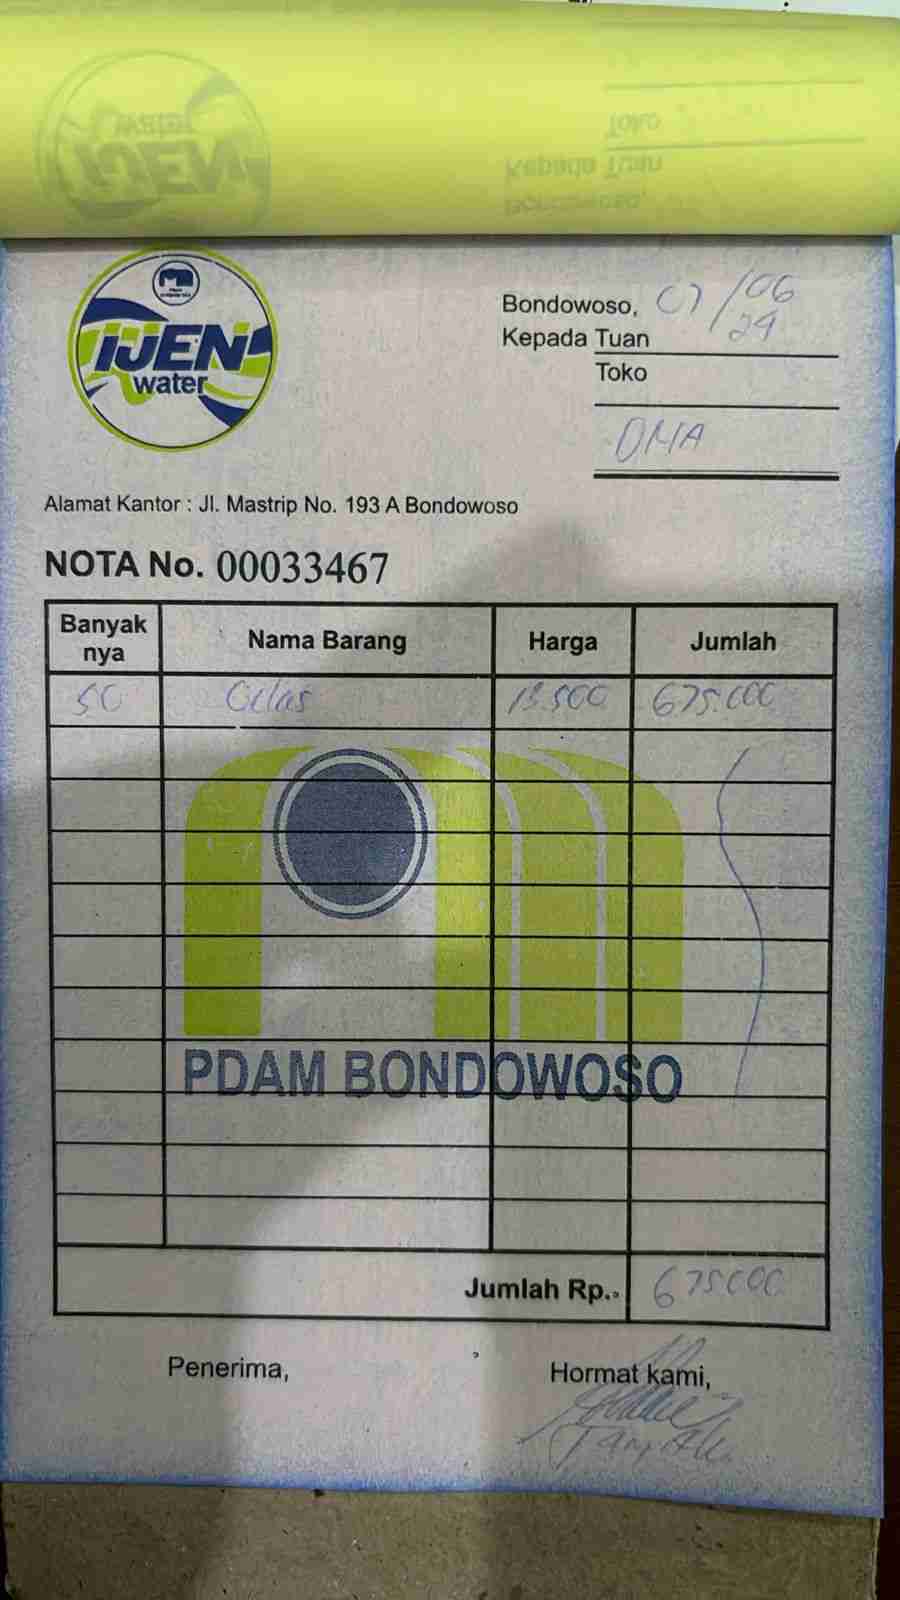 IJEN
water
Bondowoso, 07/06
24
Kepada Tuan
Toko
OMA
Alamat Kantor : Jl. Mastrip No. 193 A Bondowoso
NOTA No. 00033467
Banyak nya Nama Barang Harga Jumlah
50 Gelas 13.500 675.000
PDAM BONDOWOSO
Jumlah Rp. 675000
Penerima, Hormat kami,